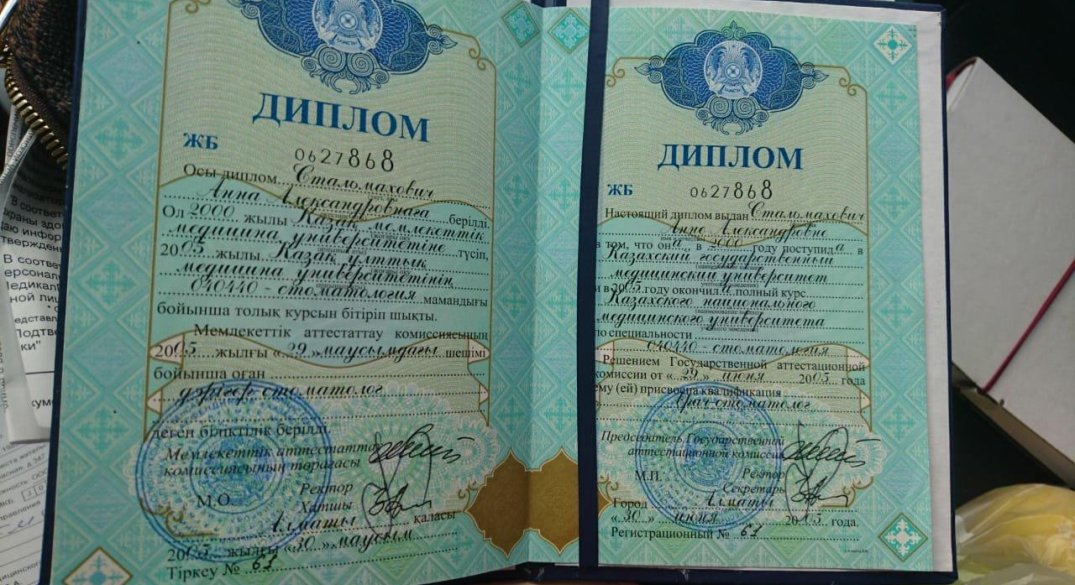 ДИПЛОМ
ЖБ 0627868
Осы диплом Сталомахович
Анна Александровнаға берілді.
Ол 2000 жылы Қазақ мемлекеттік
медицина университетіне түсіп,
2005 жылы Қазақ ұлттық
медицина университетінің
040440 - стоматология мамандығы
бойынша толық курсын бітіріп шықты.
Мемлекеттік аттестаттау комиссиясының
2005 жылғы «29» маусымдағы шешімі
бойынша оған
дәрігер стоматолог
деген біліктілік берілді.
Мемлекеттік аттестаттау
комиссиясының төрағасы
М.О. Ректор
Хатшы
Алматы қаласы
2005 жылғы «30» маусым
Тіркеу № 62
ДИПЛОМ
ЖБ 0627868
Настоящий диплом выдан Сталомахович
Анне Александровне
в том, что она в 2000 году поступила в
Казахский государственный
медицинский университет
и в 2005 году окончила полный курс
Казахского национального
медицинского университета
по специальности
040440 стоматология
Решением Государственной аттестационной
комиссии от «29» июня 2005 года
ему (ей) присвоена квалификация
Врач стоматолог
Председатель Государственной
аттестационной комиссии
М.П. Ректор
Секретарь
Город Алматы
«30» июня 2005 года.
Регистрационный № 62